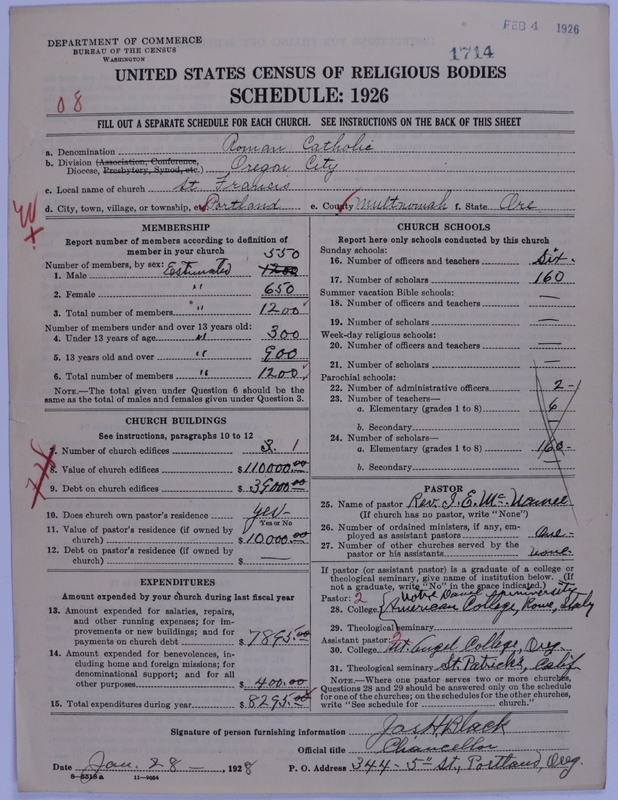 FEB 4 1926
DEPARTMENT OF COMMERCE
BUREAU OF THE CENSUS
WASHINGTON
1714
UNITED STATES CENSUS OF RELIGIOUS BODIES
SCHEDULE: 1926
08
FILL OUT A SEPARATE SCHEDULE FOR EACH CHURCH. SEE INSTRUCTIONS ON THE BACK OF THIS SHEET
a. Denomination Roman Catholic
b. Division (Association, Conference, Diocese, Presbytery, Synod, etc.) Oregon City
c. Local name of church St. Francis
d. City, town, village, or township, etc. Portland e. County Multnomah f. State Ore
MEMBERSHIP
Report number of members according to definition of
member in your church 550
Number of members, by sex: Estimated
1. Male 1200
2. Female " 650
3. Total number of members " 1200
Number of members under and over 13 years old:
4. Under 13 years of age " 300
5. 13 years old and over " 900
6. Total number of members " 1200
NOTE.—The total given under Question 6 should be the
same as the total of males and females given under Question 3.
CHURCH BUILDINGS
See instructions, paragraphs 10 to 12
7. Number of church edifices 3. 1
8. Value of church edifices $110000.00
9. Debt on church edifices $39000.00
10. Does church own pastor's residence yes-
Yes or No
11. Value of pastor's residence (if owned by
church) $10000.00
12. Debt on pastor's residence (if owned by
church) $ —
EXPENDITURES
Amount expended by your church during last fiscal year
13. Amount expended for salaries, repairs,
and other running expenses; for im-
provements or new buildings; and for
payments on church debt $7895.00
14. Amount expended for benevolences, in-
cluding home and foreign missions; for
denominational support; and for all
other purposes $400.00
15. Total expenditures during year $8295.00
CHURCH SCHOOLS
Report here only schools conducted by this church
Sunday schools:
16. Number of officers and teachers Six.
17. Number of scholars 160
Summer vacation Bible schools:
18. Number of officers and teachers —
19. Number of scholars —
Week-day religious schools:
20. Number of officers and teachers —
21. Number of scholars —
Parochial schools:
22. Number of administrative officers 2-
23. Number of teachers—
a. Elementary (grades 1 to 8) 6
b. Secondary —
24. Number of scholars—
a. Elementary (grades 1 to 8) 160-
b. Secondary —
PASTOR
25. Name of pastor Rev. J. E. Mc
(If church has no pastor, write "None")
26. Number of ordained ministers, if any, em-
ployed as assistant pastors One-
27. Number of other churches served by the
pastor or his assistants none-
If pastor (or assistant pastor) is a graduate of a college or
theological seminary, give name of institution below. (If
not a graduate, write "No" in the space indicated.)
Pastor: 2 Notre Dame University
28. College American College, Rome, Italy
29. Theological seminary
Assistant pastor: 2
30. College Mt. Angel College, Oreg.
31. Theological seminary St. Patricks, Calif
NOTE.—Where one pastor serves two or more churches,
Questions 28 and 29 should be answered only on the schedule
for one of the churches; on the schedules for the other churches,
write "See schedule for church."
Signature of person furnishing information Jas H Black
Official title Chancellor
Date Jan. 28 —, 1928 P. O. Address 344-5th St., Portland, Oreg.
8-5518a 11-9064